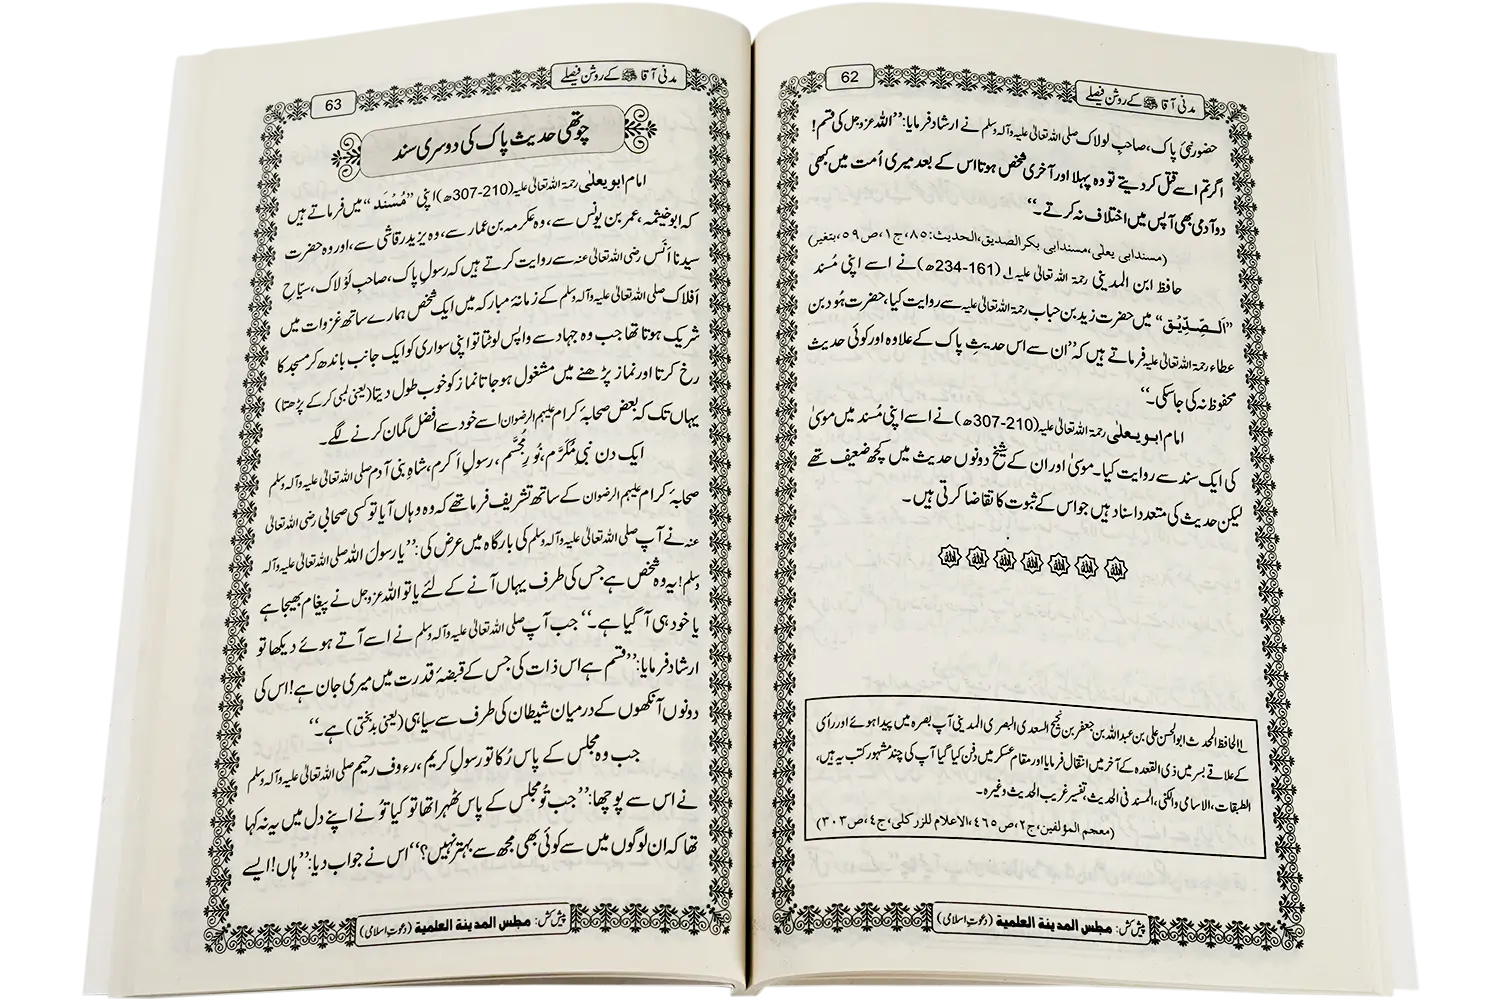 62
مدنی آقا ﷺ کے روشن فیصلے
حضور نبیٔ پاک، صاحبِ لولاک صلی اللہ تعالیٰ علیہ وآلہ وسلم نے ارشاد فرمایا: ”اللہ عزوجل کی قسم!
اگر تم اسے قتل کر دیتے تو وہ پہلا اور آخری شخص ہوتا اس کے بعد میری اُمت میں کبھی
دو آدمی بھی آپس میں اختلاف نہ کرتے۔“
(مسندابی یعلٰی، مسندابی بکر الصدیق، الحدیث: ٨٥، ج ١، ص ٥٩، بتغیر)
حافظ ابن المدینی رحمۃ اللہ تعالیٰ علیہ ۱؎ (161-234ھ) نے اسے اپنی مُسند
”اَلصِّدِّیْق“ میں حضرت زید بن حباب رحمۃ اللہ تعالیٰ علیہ سے روایت کیا، حضرت ہُود بن
عطاء رحمۃ اللہ تعالیٰ علیہ فرماتے ہیں کہ ”ان سے اس حدیثِ پاک کے علاوہ اور کوئی حدیث
محفوظ نہ کی جا سکی۔“
امام ابو یعلٰی رحمۃ اللہ تعالیٰ علیہ (210-307ھ) نے اسے اپنی مُسند میں موسیٰ
کی ایک سند سے روایت کیا۔ موسیٰ اور ان کے شیخ دونوں حدیث میں کچھ ضعیف تھے
لیکن حدیث کی متعدد اسناد ہیں جو اس کے ثبوت کا تقاضا کرتی ہیں۔
۱؎ الحافظ المحدث ابو الحسن علی بن عبداللہ بن جعفر بن نجیح السعدی البصری المدینی آپ بصرہ میں پیدا ہوئے اور رأی
کے علاقے بسر میں ذی القعدہ کے آخر میں انتقال فرمایا اور مقام عسکر میں دفن کیا گیا آپ کی چند مشہور کتب یہ ہیں،
الطبقات، الاسامی والکنی، المسند فی الحدیث، تفسیر غریب الحدیث وغیرہ۔
(معجم المؤلفین، ج ٢، ص ٤٦٥، الاعلام للزرکلی، ج ٤، ص ٣٠٣)
پیش کش: مجلس المدینۃ العلمیۃ (دعوتِ اسلامی)
63
مدنی آقا ﷺ کے روشن فیصلے
چوتھی حدیث پاک کی دوسری سند
امام ابو یعلٰی رحمۃ اللہ تعالیٰ علیہ (210-307ھ) اپنی ”مُسْنَد“ میں فرماتے ہیں
کہ ابو خیثمہ، عمر بن یونس سے، وہ عکرمہ بن عمار سے، وہ یزید رقاشی سے، اور وہ حضرت
سیدنا اَنَس رضی اللہ تعالیٰ عنہ سے روایت کرتے ہیں کہ رسولِ پاک، صاحبِ لَولاک، سیّاحِ
اَفلاک صلی اللہ تعالیٰ علیہ وآلہ وسلم کے زمانۂ مبارکہ میں ایک شخص ہمارے ساتھ غزوات میں
شریک ہوتا تھا جب وہ جہاد سے واپس لوٹتا تو اپنی سواری کو ایک جانب باندھ کر مسجد کا
رخ کرتا اور نماز پڑھنے میں مشغول ہو جاتا نماز کو خوب طول دیتا (یعنی لمبی کر کے پڑھتا)
یہاں تک کہ بعض صحابۂ کرام علیہم الرضوان اسے خود سے افضل گمان کرنے لگے۔
ایک دن نبی مُکَرَّم، نُورِ مُجَسَّم، رسولِ اکرم، شاہِ بنی آدم صلی اللہ تعالیٰ علیہ وآلہ وسلم
صحابۂ کرام علیہم الرضوان کے ساتھ تشریف فرما تھے کہ وہ وہاں آیا تو کسی صحابی رضی اللہ تعالیٰ
عنہ نے آپ صلی اللہ تعالیٰ علیہ وآلہ وسلم کی بارگاہ میں عرض کی: ”یا رسول اللہ صلی اللہ تعالیٰ علیہ وآلہ
وسلم! یہ وہ شخص ہے جس کی طرف یہاں آنے کے لئے یا تو اللہ عزوجل نے پیغام بھیجا ہے
یا خود ہی آ گیا ہے۔“ جب آپ صلی اللہ تعالیٰ علیہ وآلہ وسلم نے اسے آتے ہوئے دیکھا تو
ارشاد فرمایا: ”قسم ہے اس ذات کی جس کے قبضۂ قدرت میں میری جان ہے! اس کی
دونوں آنکھوں کے درمیان شیطان کی طرف سے سیاہی (یعنی بدبختی) ہے۔“
جب وہ مجلس کے پاس رُکا تو رسولِ کریم، رءوف رحیم صلی اللہ تعالیٰ علیہ وآلہ وسلم
نے اس سے پوچھا: ”جب تُو مجلس کے پاس ٹھہرا تھا تو کیا تُو نے اپنے دل میں یہ نہ کہا
تھا کہ ان لوگوں میں سے کوئی بھی مجھ سے بہتر نہیں؟“ اس نے جواب دیا: ”ہاں! ایسے
پیش کش: مجلس المدینۃ العلمیۃ (دعوتِ اسلامی)